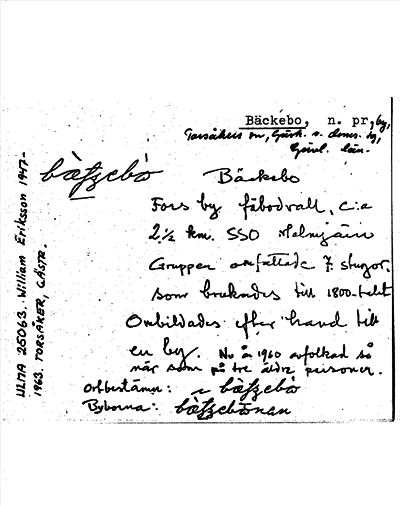 Bäckebo, n. pr., by,
Torsåkers sn, Gästr. ö. doms. by,
Gävl. län.
Bäckebo
Fors by fäbodvall, c:a
2 ½ km. SSO Malmjärn
Gruppen omfattade 7 stugor,
som brukades till 1800-talet
Ombildades efter hand till
en by. Nu år 1960 avfolkad så
när som på tre äldre personer.
Ortbestämn: i
Byborna:
ULMA 25063. William Eriksson 1947-
1963. TORSÅKER, GÄSTR.